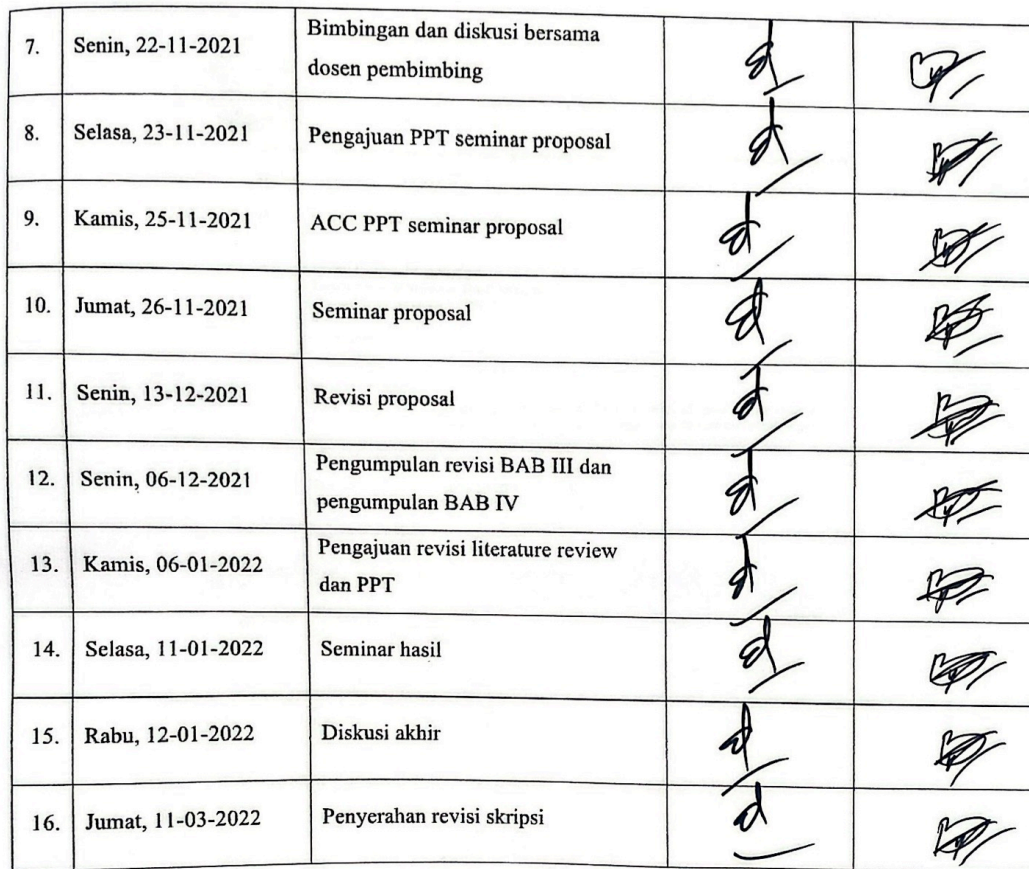 7. Senin, 22-11-2021 Bimbingan dan diskusi bersama
dosen pembimbing
8. Selasa, 23-11-2021 Pengajuan PPT seminar proposal
9. Kamis, 25-11-2021 ACC PPT seminar proposal
10. Jumat, 26-11-2021 Seminar proposal
11. Senin, 13-12-2021 Revisi proposal
12. Senin, 06-12-2021 Pengumpulan revisi BAB III dan
pengumpulan BAB IV
13. Kamis, 06-01-2022 Pengajuan revisi literature review
dan PPT
14. Selasa, 11-01-2022 Seminar hasil
15. Rabu, 12-01-2022 Diskusi akhir
16. Jumat, 11-03-2022 Penyerahan revisi skripsi